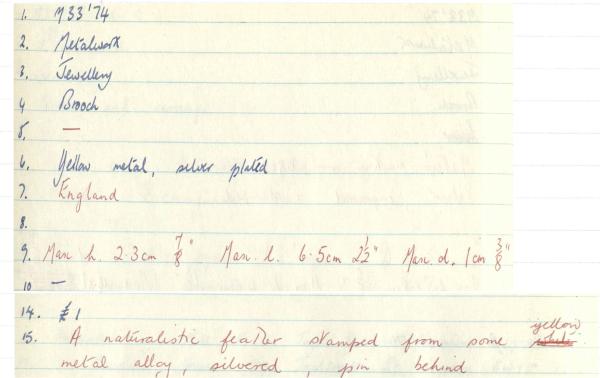 1. M33 '74
2. Metalwork
3. Jewellery
4 Brooch
5. —
6. Yellow metal, silver plated
7. England
8.
9. Max h. 2.3cm 7/8" Max. l. 6.5cm 2 1/2" Max d. 1cm 3/8"
10 —
14. £1
yellow
15. A naturalistic feather stamped from some white
metal alloy, silvered, pin behind